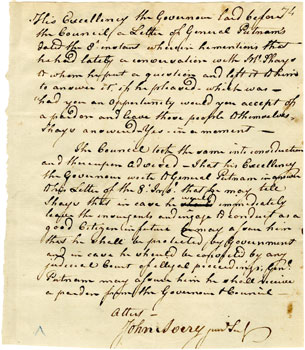 74
His Excellency the Governour laid before
the Council, a Letter of General Putnam's
dated the 8th instant wherein he mentions that
he had lately a conversation with Mr. Shays
to whom he put a question and left it to him
to answer it, if he pleased — which was —
had you an Opportunity would you accept of
a pardon and leave these people to themselves
Shays answered Yes — in a moment —
The Council took the same into consideration
and thereupon advised — That his Excellency
the Governour write to General Putnam in answer
to his Letter of the 8th Inst. that he may tell
Shays that in case he would immediately
leave the insurgents and engage to conduct as a
good Citizen in future he may assure him
that he shall be protected by Government
and in case he should be convicted by any
judicial Court of illegal proceedings, Genl.
Putnam may assure him he shall receive
a pardon from the Governour & Council —
Attest —
John Avery junr. Secy.